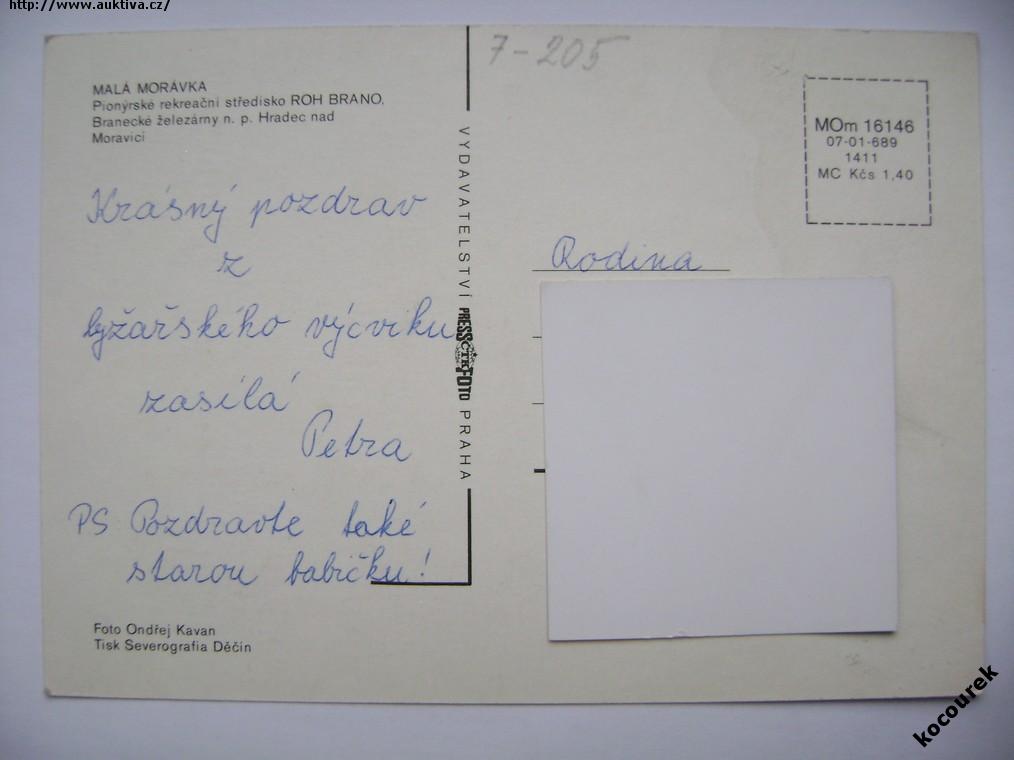 http://www.auktiva.cz/
7-205
MALÁ MORÁVKA
Pionýrské rekreační středisko ROH BRANO,
Branecké železárny n. p. Hradec nad
Moravicí
Krásný pozdrav
z
lyžařského výcviku
zasílá
Petra
PS Pozdravte také
starou babičku!
Foto Ondřej Kavan
Tisk Severografia Děčín
VYDAVATELSTVÍ PRESSFOTO PRAHA
ČTK
MOm 16146
07-01-689
1411
MC Kčs 1,40
Rodina
kocourek